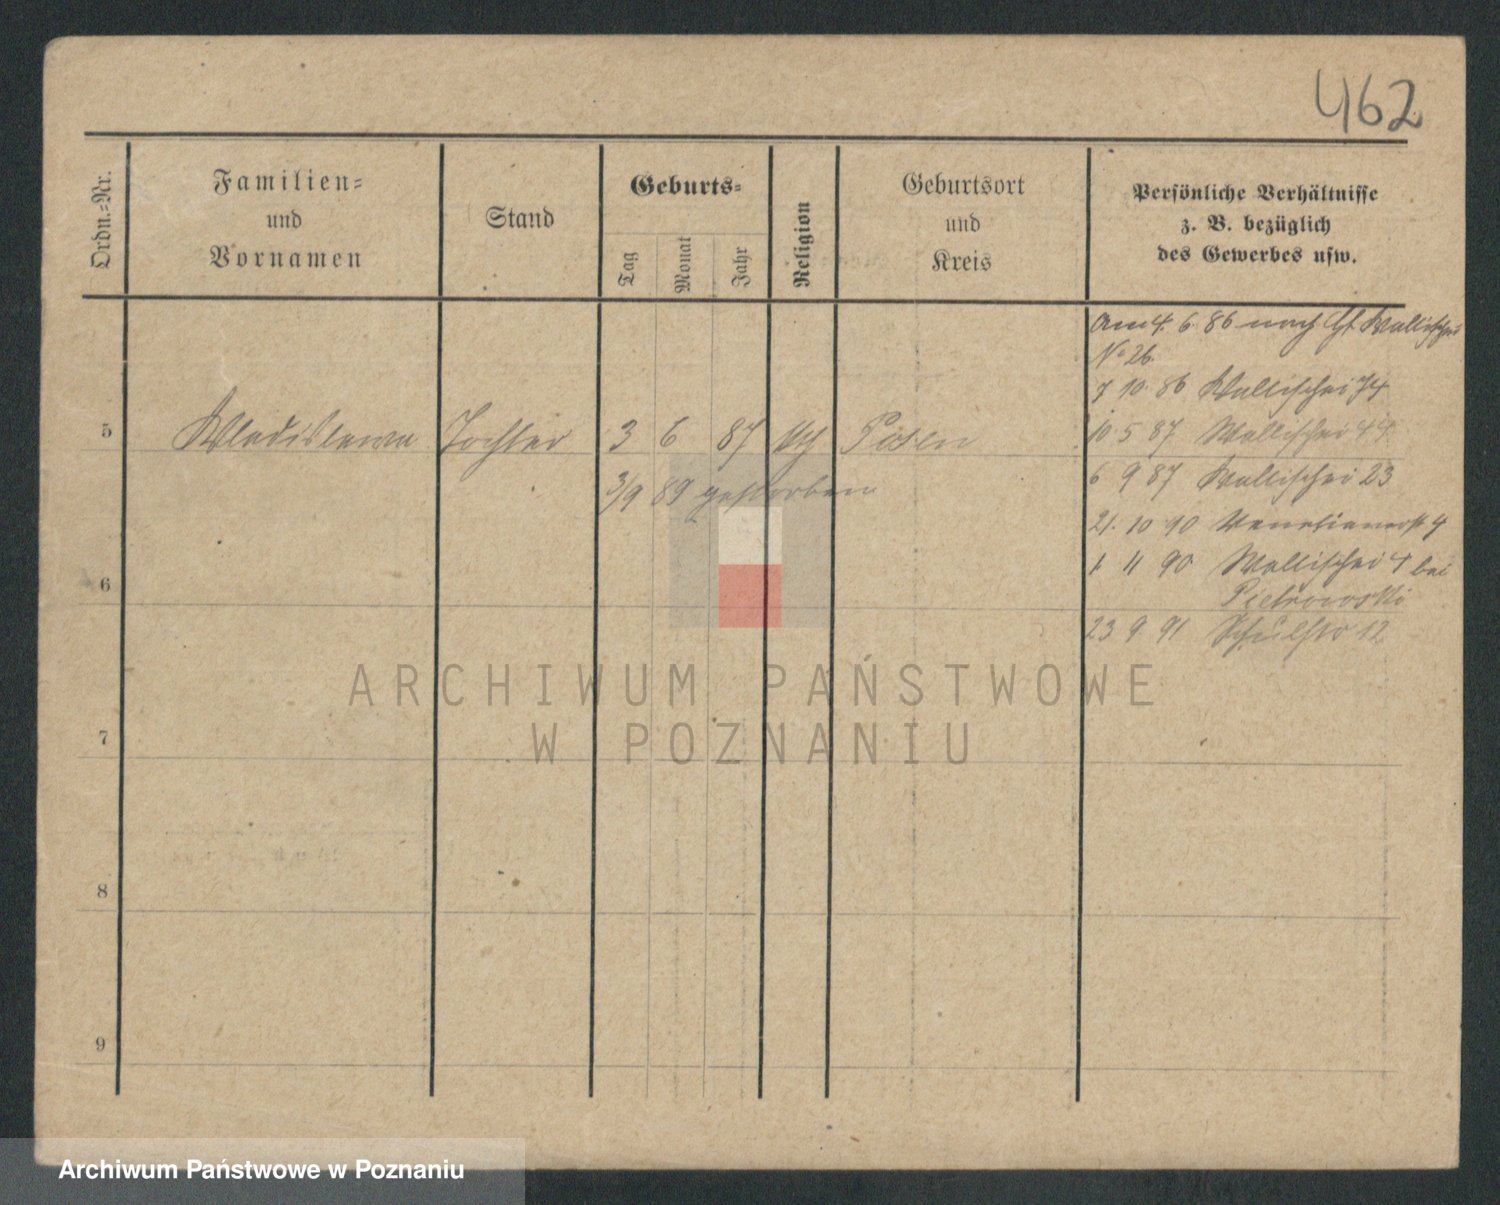 462
Ordn.-Nr.
Familien-
und
Vornamen
Stand
Geburts-
Tag
Monat
Jahr
Religion
Geburtsort
und
Kreis
Persönliche Verhältnisse
z. B. bezüglich
des Gewerbes usw.
Am 4. 6. 86 nach Wallischei
No 26.
7 10. 86 Wallischei 74
5 Wladislawa Tochter 3 6 87 Posen
10. 5 87 Wallischei 44
6 9 87 Wallischei 23
3/9 89 gestorben
21. 10 90 Venetianerstr 4
1 11 90 Wallischei 4 bei
Pietrowski
6
23 9 91 Schulstr 12
ARCHIWUM PAŃSTWOWE
W POZNANIU
7
8
9
Archiwum Państwowe w Poznaniu